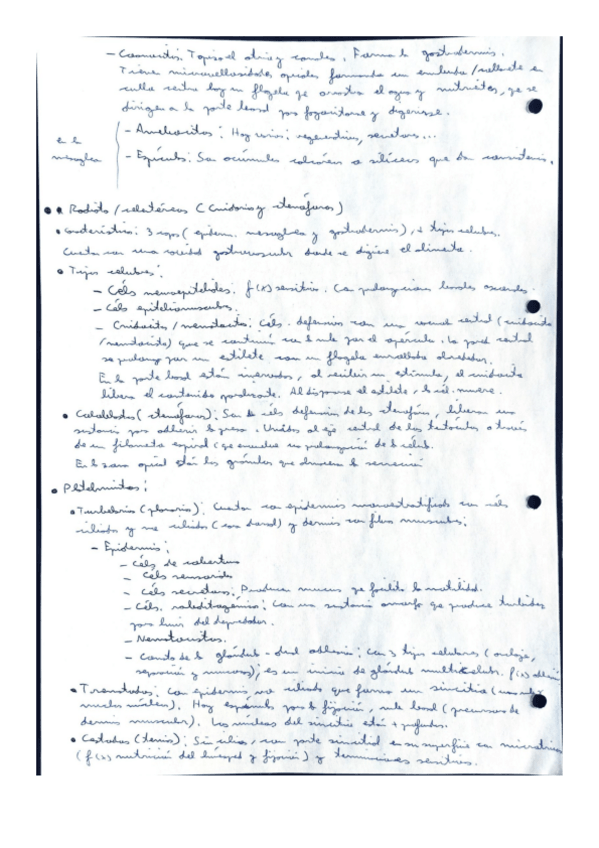 - Coanocitos: Tapizan el atrio y canales. Forman la gastrodermis.
Tiene microvellosidades apicales formando un embudo/collarete en
cuyo centro hay un flagelo que arrastra el agua y nutrientes, que se
dirigen a la parte basal por fagocitarse y digerirse.
en la mesoglea
- Amebocitos: Hay varios: regenerativos, secretores...
- Espículas: Son acúmulos calcáreos o silíceos que dan consistencia.
• Radiata / celentéreos (Cnidarios y ctenóforos)
• Características: 3 capas (epiderm. mesoglea y gastrodermis), + tipos celulares.
Cuentan con una cavidad gastrovascular donde se digiere el alimento.
• Tipos celulares:
- Céls neuroepiteliales: f(x) sensitiva. Con prolongaciones basales
- Céls epiteliomusculares.
- Cnidocitos / nematocitos: Céls. defensivas con una vacuola central (cnidocisto
/nematocisto) que se continúa con la parte por el opérculo. La pared central
se prolonga por un estilete con un flagelo enrollado alrededor.
En la parte basal están inervados, al recibir un estímulo, el cnidocito
libera el contenido
Al dispararse el estilete, la cél. muere.
• Coloblastos (ctenóforos): Son las céls defensivas de los ctenóforos, liberan una
sustancia por adherir la presa. Unidos al eje central de los tentáculos a través
de un filamento espiral (que envuelve una prolongación de la célula).
En la zona apical están los gránulos que almacenan la secreción
• Platelmintos:
• Turbelarios (planaria): Cuentan con epidermis monoestratificada con céls
ciliadas y no ciliadas (zona dorsal) y dermis con fibras musculares:
- Epidermis:
- Céls de cobertura
- Céls sensoriales
- Céls secretoras: Producen mucus que facilita la motilidad.
- Céls. rabditógenas: Con una sustancia amorfa que produce turbidez
para huir del depredador.
- Nematocistos.
- Conjunto de la glándula-dual adhesiva: Con 3 tipos celulares (anclaje,
separación y mucosas); es un inicio de glándula multicelular. f(x)
• Trematodos: Con epidermis no ciliada que forma un sincitio (una célula
muchos núcleos). Hay espículas por la fijación, parte basal (precursora de
dermis muscular). Los núcleos del sincitio están + profundos.
• Cestodos (tenia): Sin cilios, con parte sincitial en su superficie con microtricas
(f(x) nutrición del huésped y fijación) y terminaciones sensitivas.